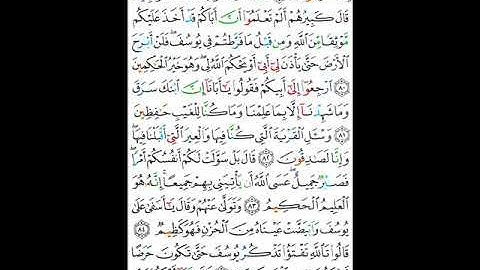 قَالَ كَبِيرُهُمْ أَلَمْ تَعْلَمُوٓا۟ أَنَّ أَبَاكُمْ قَدْ أَخَذَ عَلَيْكُم
مَّوْثِقًا مِّنَ ٱللَّهِ وَمِن قَبْلُ مَا فَرَّطتُمْ فِى يُوسُفَ ۖ فَلَنْ أَبْرَحَ
ٱلْأَرْضَ حَتَّىٰ يَأْذَنَ لِىٓ أَبِىٓ أَوْ يَحْكُمَ ٱللَّهُ لِى ۖ وَهُوَ خَيْرُ ٱلْحَـٰكِمِينَ
٨٠ ٱرْجِعُوٓا۟ إِلَىٰٓ أَبِيكُمْ فَقُولُوا۟ يَـٰٓأَبَانَآ إِنَّ ٱبْنَكَ سَرَقَ
وَمَا شَهِدْنَآ إِلَّا بِمَا عَلِمْنَا وَمَا كُنَّا لِلْغَيْبِ حَـٰفِظِينَ
٨١ وَسْـَٔلِ ٱلْقَرْيَةَ ٱلَّتِى كُنَّا فِيهَا وَٱلْعِيرَ ٱلَّتِىٓ أَقْبَلْنَا فِيهَا ۖ
وَإِنَّا لَصَـٰدِقُونَ ٨٢ قَالَ بَلْ سَوَّلَتْ لَكُمْ أَنفُسُكُمْ أَمْرًا ۖ
فَصَبْرٌ جَمِيلٌ ۖ عَسَى ٱللَّهُ أَن يَأْتِيَنِى بِهِمْ جَمِيعًا ۚ إِنَّهُۥ هُوَ
ٱلْعَلِيمُ ٱلْحَكِيمُ ٨٣ وَتَوَلَّىٰ عَنْهُمْ وَقَالَ يَـٰٓأَسَفَىٰ عَلَىٰ
يُوسُفَ وَٱبْيَضَّتْ عَيْنَاهُ مِنَ ٱلْحُزْنِ فَهُوَ كَظِيمٌ ٨٤
قَالُوا۟ تَٱللَّهِ تَفْتَؤُا۟ تَذْكُرُ يُوسُفَ حَتَّىٰ تَكُونَ حَرَضًا